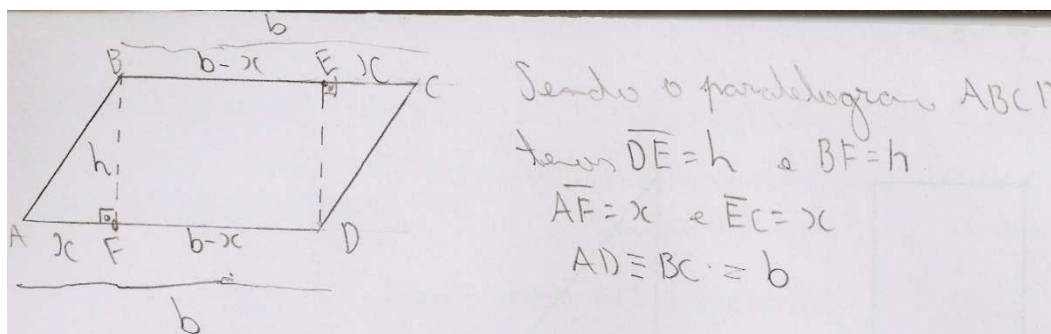 b
B b-x E x C
h
A x F b-x D
b
Sendo o paralelogramo ABCD
temos DE = h e BF = h
AF = x e EC = x
AD ≡ BC = b